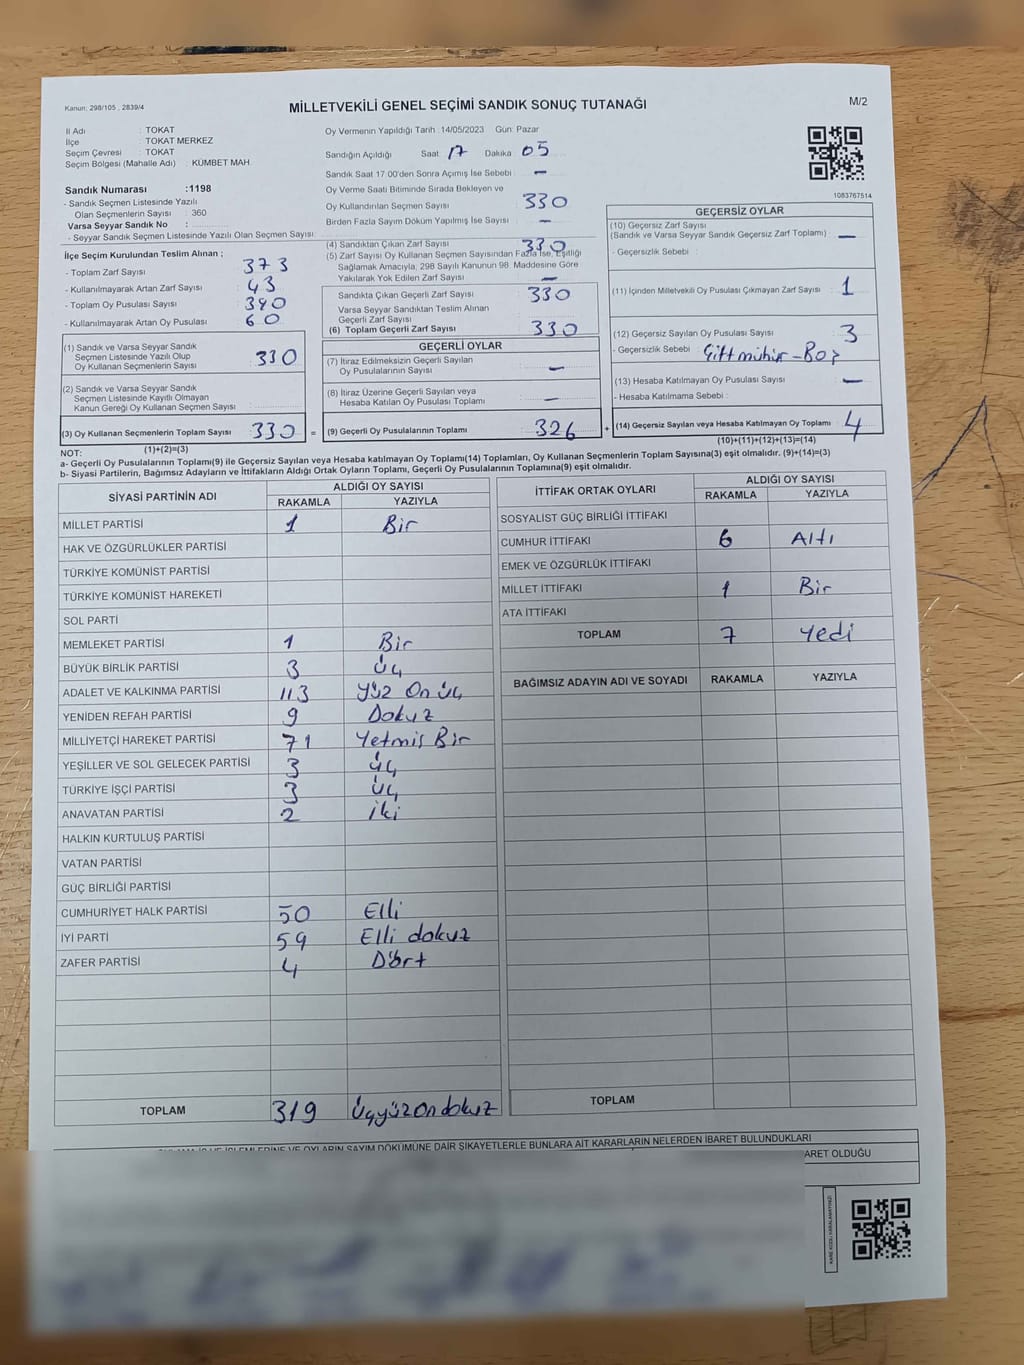 Kanun: 298/105 , 2839/4
MİLLETVEKİLİ GENEL SEÇİMİ SANDIK SONUÇ TUTANAĞI
M/2
İl Adı : TOKAT
İlçe : TOKAT MERKEZ
Seçim Çevresi : TOKAT
Seçim Bölgesi (Mahalle Adı) : KÜMBET MAH.
Sandık Numarası :1198
- Sandık Seçmen Listesinde Yazılı
Olan Seçmenlerin Sayısı : 360
Varsa Seyyar Sandık No :
- Seyyar Sandık Seçmen Listesinde Yazılı Olan Seçmen Sayısı:
İlçe Seçim Kurulundan Teslim Alınan ;
- Toplam Zarf Sayısı 373
- Kullanılmayarak Artan Zarf Sayısı : 43
- Toplam Oy Pusulası Sayısı : 390
- Kullanılmayarak Artan Oy Pusulası : 60
(1) Sandık ve Varsa Seyyar Sandık
Seçmen Listesinde Yazılı Olup
Oy Kullanan Seçmenlerin Sayısı : 330
(2) Sandık ve Varsa Seyyar Sandık
Seçmen Listesinde Kayıtlı Olmayan
Kanun Gereği Oy Kullanan Seçmen Sayısı :
(3) Oy Kullanan Seçmenlerin Toplam Sayısı 330 =
(1)+(2)=(3)
Oy Vermenin Yapıldığı Tarih :14/05/2023 Gün: Pazar
Sandığın Açıldığı Saat : 17 Dakika : 05
Sandık Saat 17:00'den Sonra Açımış İse Sebebi : –
Oy Verme Saati Bitiminde Sırada Bekleyen ve
Oy Kullandırılan Seçmen Sayısı : 330
Birden Fazla Sayım Döküm Yapılmış İse Sayısı : –
(4) Sandıktan Çıkan Zarf Sayısı : 330
(5) Zarf Sayısı Oy Kullanan Seçmen Sayısından Fazla İse, Eşitliği
Sağlamak Amacıyla, 298 Sayılı Kanunun 98. Maddesine Göre
Yakılarak Yok Edilen Zarf Sayısı : –
Sandıkta Çıkan Geçerli Zarf Sayısı : 330
Varsa Seyyar Sandıktan Teslim Alınan
Geçerli Zarf Sayısı :
(6) Toplam Geçerli Zarf Sayısı : 330
GEÇERLİ OYLAR
(7) İtiraz Edilmeksizin Geçerli Sayılan
Oy Pusulalarının Sayısı : –
(8) İtiraz Üzerine Geçerli Sayılan veya
Hesaba Katılan Oy Pusulası Toplamı : –
(9) Geçerli Oy Pusulalarının Toplamı : 326 +
1083767514
GEÇERSİZ OYLAR
(10) Geçersiz Zarf Sayısı
(Sandık ve Varsa Seyyar Sandık Geçersiz Zarf Toplamı) : –
- Geçersizlik Sebebi :
(11) İçinden Milletvekili Oy Pusulası Çıkmayan Zarf Sayısı : 1
(12) Geçersiz Sayılan Oy Pusulası Sayısı : 3
- Geçersizlik Sebebi : Çift mühür - Boş
(13) Hesaba Katılmayan Oy Pusulası Sayısı : –
- Hesaba Katılmama Sebebi :
(14) Geçersiz Sayılan veya Hesaba Katılmayan Oy Toplamı : 4
(10)+(11)+(12)+(13)=(14)
NOT:
a- Geçerli Oy Pusulalarının Toplamı(9) ile Geçersiz Sayılan veya Hesaba katılmayan Oy Pusulası Toplamı(14) Toplamları, Oy Kullanan Seçmenlerin Toplam Sayısına(3) eşit olmalıdır. (9)+(14)=(3)
b- Siyasi Partilerin, Bağımsız Adayların ve İttifakların Aldığı Ortak Oyların Toplamı, Geçerli Oy Pusulalarının Toplamına(9) eşit olmalıdır.
SİYASİ PARTİNİN ADI ALDIĞI OY SAYISI
RAKAMLA YAZIYLA
MİLLET PARTİSİ 1 Bir
HAK VE ÖZGÜRLÜKLER PARTİSİ
TÜRKİYE KOMÜNİST PARTİSİ
TÜRKİYE KOMÜNİST HAREKETİ
SOL PARTİ
MEMLEKET PARTİSİ 1 Bir
BÜYÜK BİRLİK PARTİSİ 3 Üç
ADALET VE KALKINMA PARTİSİ 113 Yüz On üç
YENİDEN REFAH PARTİSİ 9 Dokuz
MİLLİYETÇİ HAREKET PARTİSİ 71 Yetmiş Bir
YEŞİLLER VE SOL GELECEK PARTİSİ 3 Üç
TÜRKİYE İŞÇİ PARTİSİ 3 Üç
ANAVATAN PARTİSİ 2 iki
HALKIN KURTULUŞ PARTİSİ
VATAN PARTİSİ
GÜÇ BİRLİĞİ PARTİSİ
CUMHURİYET HALK PARTİSİ 50 Elli
İYİ PARTİ 59 Elli dokuz
ZAFER PARTİSİ 4 Dört
TOPLAM 319 Üçyüzondokuz
İTTİFAK ORTAK OYLARI ALDIĞI OY SAYISI
RAKAMLA YAZIYLA
SOSYALİST GÜÇ BİRLİĞİ İTTİFAKI
CUMHUR İTTİFAKI 6 Altı
EMEK VE ÖZGÜRLÜK İTTİFAKI
MİLLET İTTİFAKI 1 Bir
ATA İTTİFAKI
TOPLAM 7 Yedi
BAĞIMSIZ ADAYIN ADI VE SOYADI RAKAMLA YAZIYLA
TOPLAM
OYLARIN SAYIM DÖKÜMÜNE DAİR ŞİKAYETLERLE BUNLARA AİT KARARLARIN NELERDEN İBARET BULUNDUKLARI
OLDUĞU